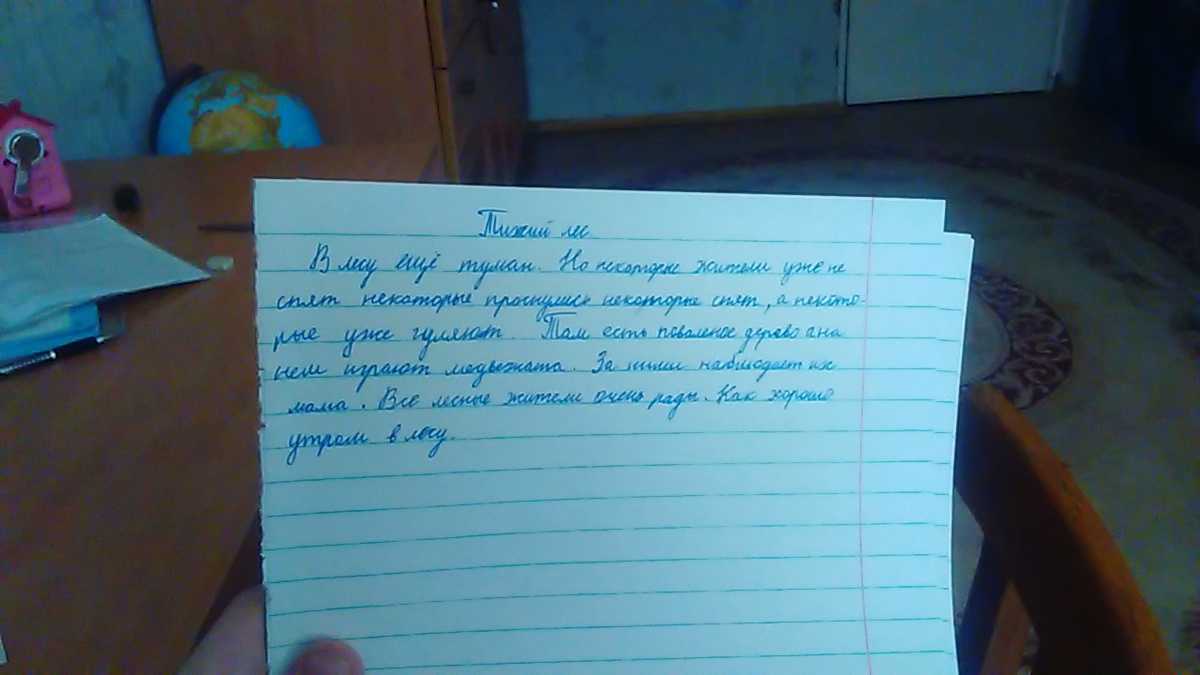 Тихий лес
В лесу ещё туман. Но некоторые жители уже не
спят некоторые проснулись некоторые спят, а некото-
рые уже гуляют. Там есть поваленое дерево а на
нем играют медвежата. За ними наблюдает их
мама. Все лесные жители очень рады. Как хорошо
утром в лесу.